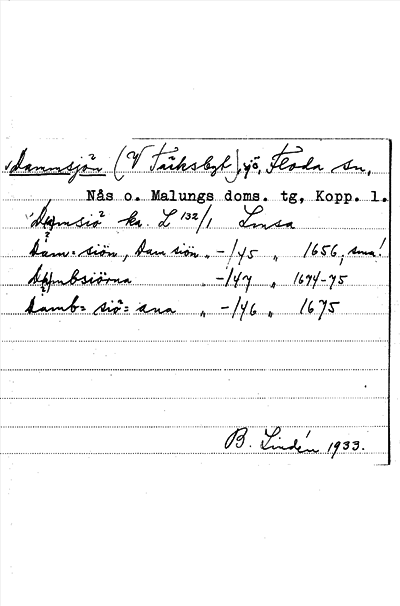 Dammsjön (V Täksbyl), sjö, Floda sn,
Nås o. Malungs doms. tg, Kopp. l.
Damsiö ka. L 132/1 Lmsa
Dam= siön, Dam siön „ -/45 „ 1656, sma!
Dambsiörna „ -/47 „ 1674-75
Damb= siö= ana „ -/46 „ 1675
B. Lindén 1933.